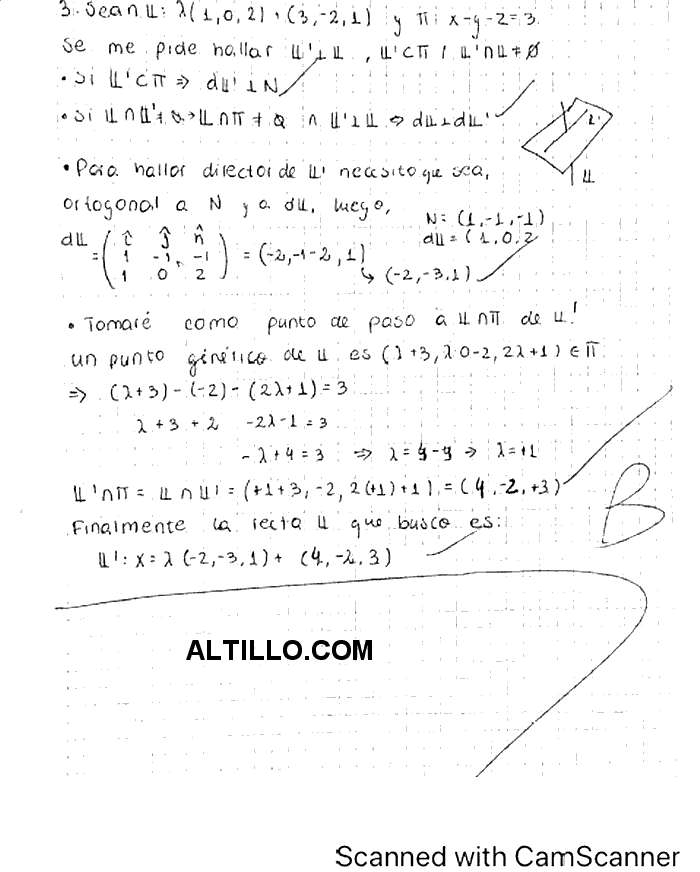 3. Sean 𝕃: λ(1,0,2)+(3,-2,1) y π: x-y-z=3.
Se me pide hallar 𝕃'⊥𝕃, 𝕃'⊂π / 𝕃'∩𝕃≠∅
• Si 𝕃'⊂π ⇒ d𝕃'⊥N
• Si 𝕃∩𝕃'≠∅⇒𝕃∩π≠∅ ∩ 𝕃'⊥𝕃 ⇔ d𝕃⊥d𝕃'
𝕃'
𝕃
• Para hallar director de 𝕃' necesito que sea,
ortogonal a N y a d𝕃, luego,
N: (1,-1,-1)
d𝕃=(1,0,2
d𝕃 = ( î ĵ n̂
1 -1 -1
1 0 2 ) = (-2,-1-2,1)
↳ (-2,-3,1)
• Tomaré como punto de paso a 𝕃∩π de 𝕃'
un punto génético de 𝕃 es (λ+3, λ·0-2, 2λ+1) ∈ π
⇒ (λ+3)-(-2)-(2λ+1)=3
λ+3+2 -2λ-1=3
-λ+4=3 ⇒ λ=4-3 ⇒ λ=+1
𝕃'∩π = 𝕃∩𝕃' = (+1+3,-2,2(+1)+1)=(4,-2,+3)
Finalmente la recta 𝕃 que busco es:
𝕃': x=λ(-2,-3,1)+(4,-2,3)
B
ALTILLO.COM
Scanned with CamScanner